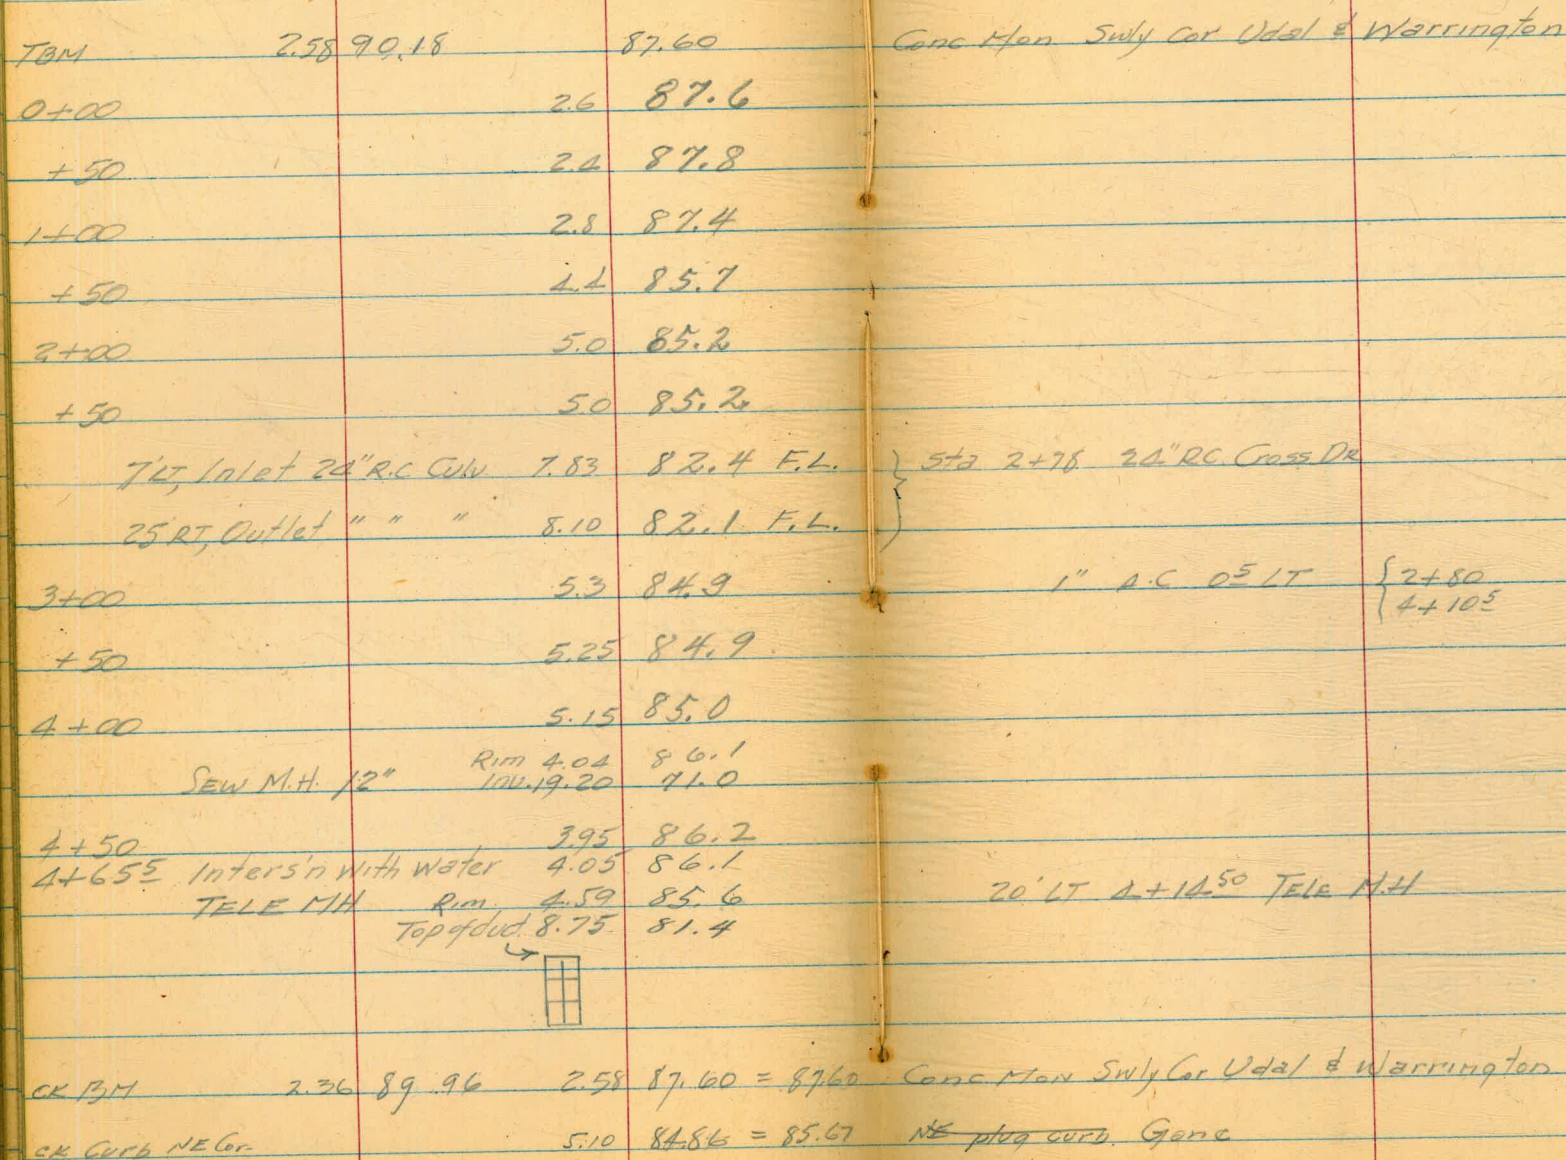 TBM 2.58 90.18 87.60 Conc Mon Swly Cor Udal & Warrington
0+00 2.6 87.6
+50 2.4 87.8
1+00 2.8 87.4
+50 4.4 85.7
2+00 5.0 85.2
+50 50 85.2
7'LT, Inlet 24" R.C Culv 7.83 82.4 F.L. } Sta 2+78 24" RC Cross Dr
25 RT, Outlet " " " 8.10 82.1 F.L.
3+00 5.3 84.9 1" A.C 0⁵ LT { 2+80
4+10⁵
+50 5.25 84.9
4+00 5.15 85.0
Rim 4.04 86.1
SEW M.H. 12" Inv. 19.20 71.0
4+50 3.95 86.2
4+65⁵ Inters'n with water 4.05 86.1
TELE MH Rim 4.59 85.6 20' LT 4+14⁵⁰ TELE M.H
Top of duct 8.75 81.4
CK BM 2.36 89.96 2.58 87.60 = 87.60 Conc Mon Swly Cor Udal & Warrington
CK Curb NE Cor. 5.10 84.86 = 85.67 NE plug curb. Gone